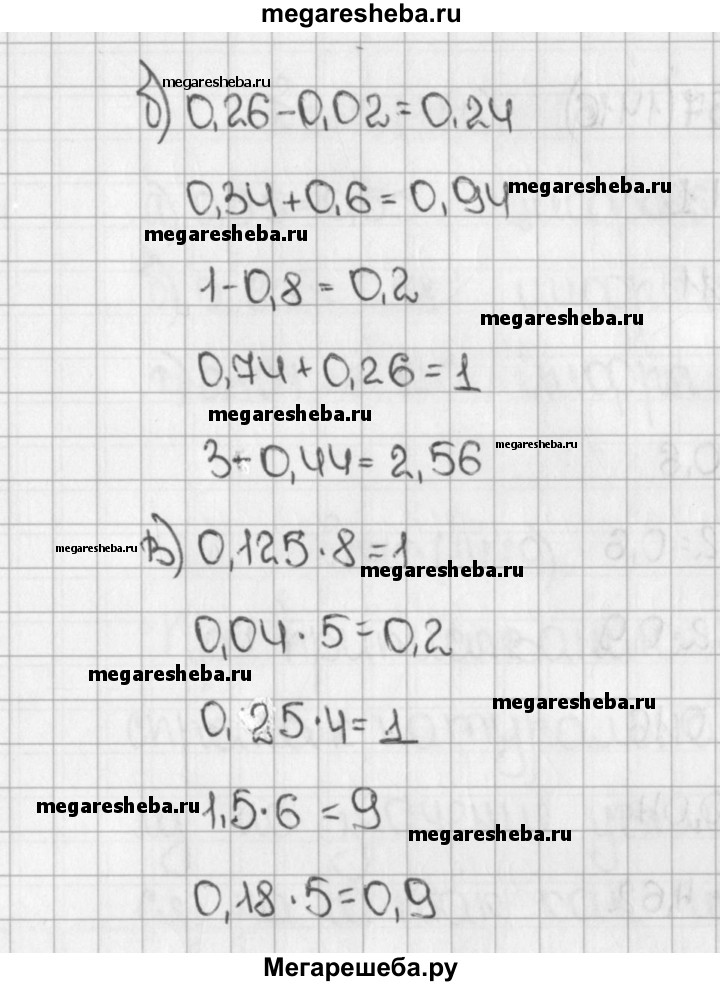 megaresheba.ru
megaresheba.ru
б) 0,26-0,02=0.24
0,34+0,6=0,94 megaresheba.ru
megaresheba.ru
1-0,8=0,2
megaresheba.ru
0,74+0,26=1
megaresheba.ru
3-0,44=2,56 megaresheba.ru
megaresheba.ru в) 0,125·8=1
megaresheba.ru
0,04·5=0,2
megaresheba.ru
megaresheba.ru
0,25·4=1
megaresheba.ru 1,5·6=9
megaresheba.ru
0,18·5=0,9
Мегарешеба.ру